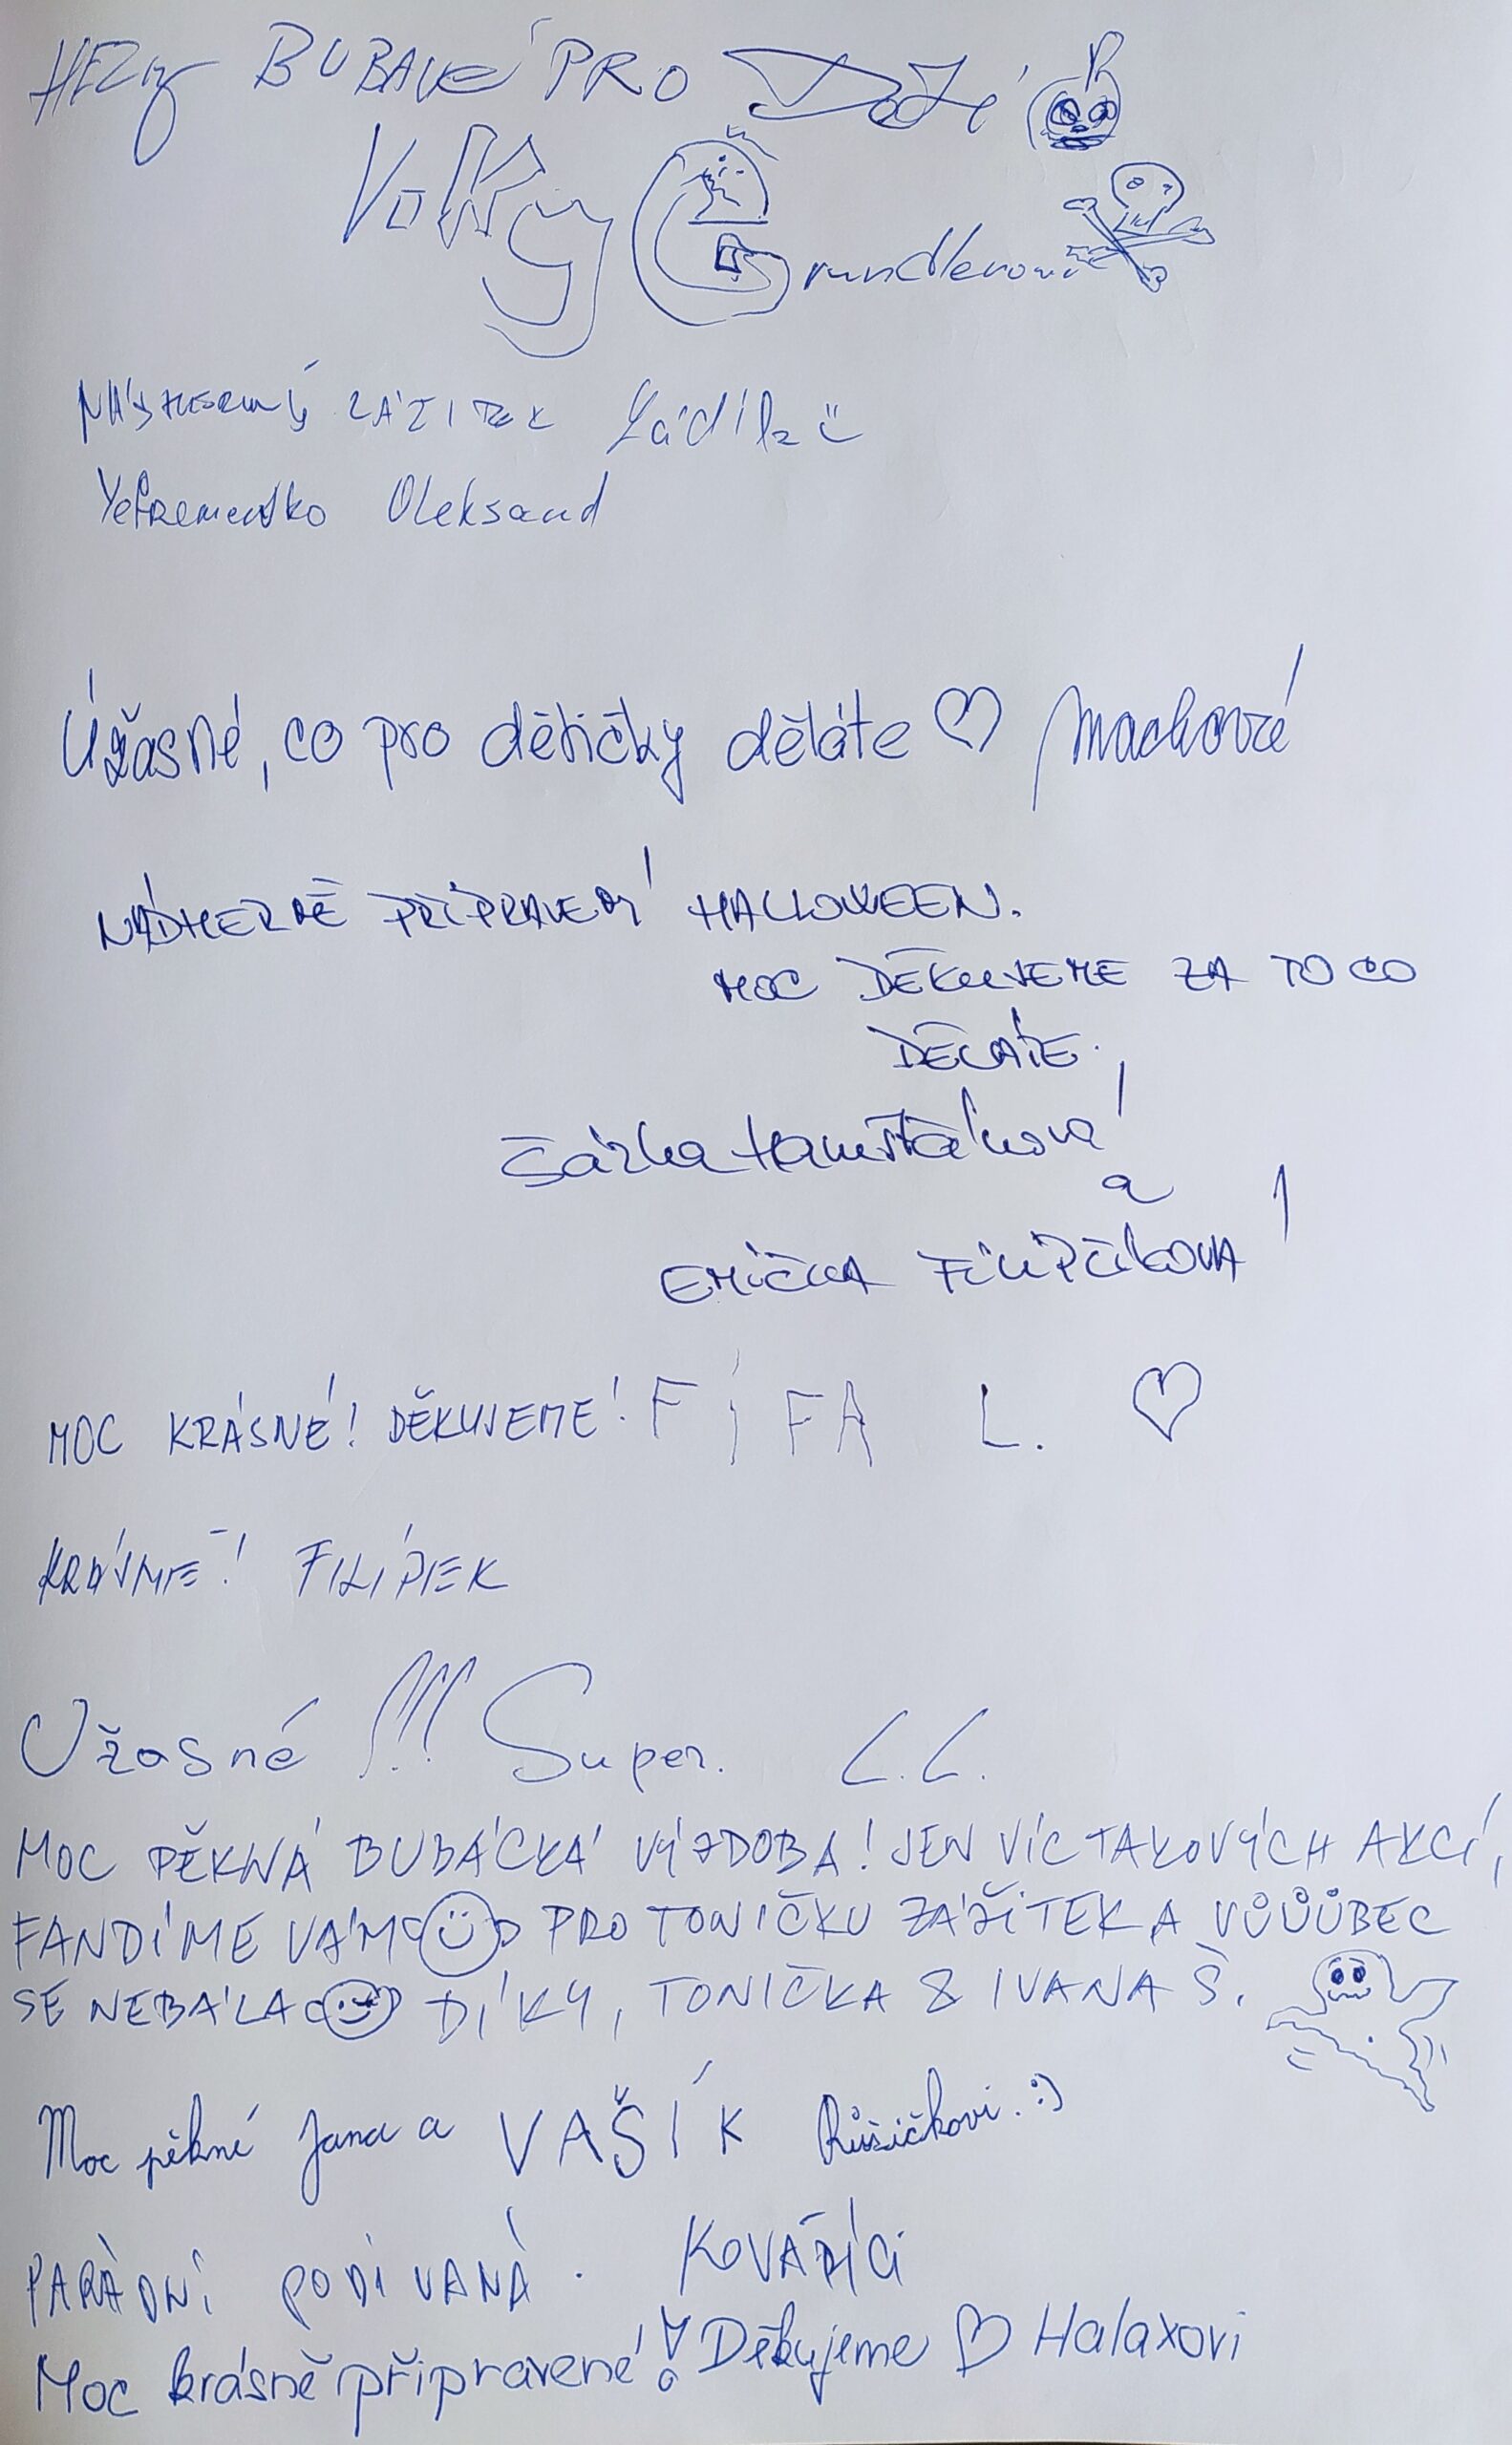 HEZKY BUBAVÉ PRO
Volky Grundlerovi
NÁDHERNÝ ZÁŽITEK Ládík
Yefremenko Oleksand
Úžasné, co pro dětičky děláte ♡ Machové
NÁDHERNĚ PŘIPRAVENÝ HALLOWEEN.
MOC DĚKUJEME ZA TO CO
DĚLÁTE.
Šárka
a
EMIČKA FILIPČÍKOVÁ
MOC KRÁSNÉ! DĚKUJEME! FÍFA L. ♡
KRÁSNÉ! FILÍPEK
Užasné !!! Super. L.L.
MOC PĚKNÁ BUBÁCKÁ VÝZDOBA! JEN VÍC TAKOVÝCH AKCÍ,
FANDÍME VÁM PRO TONIČKU ZÁŽITEK A VŮŮŮBEC
SE NEBÁLA DÍKY, TONIČKA & IVANA Š.
Moc pěkné Jana a VAŠÍK Růžičkovi. :)
PARÁDNÍ PODÍVANÁ. KOVÁŘÍCI
Moc krásně připravené! Děkujeme ♡ Halaxovi